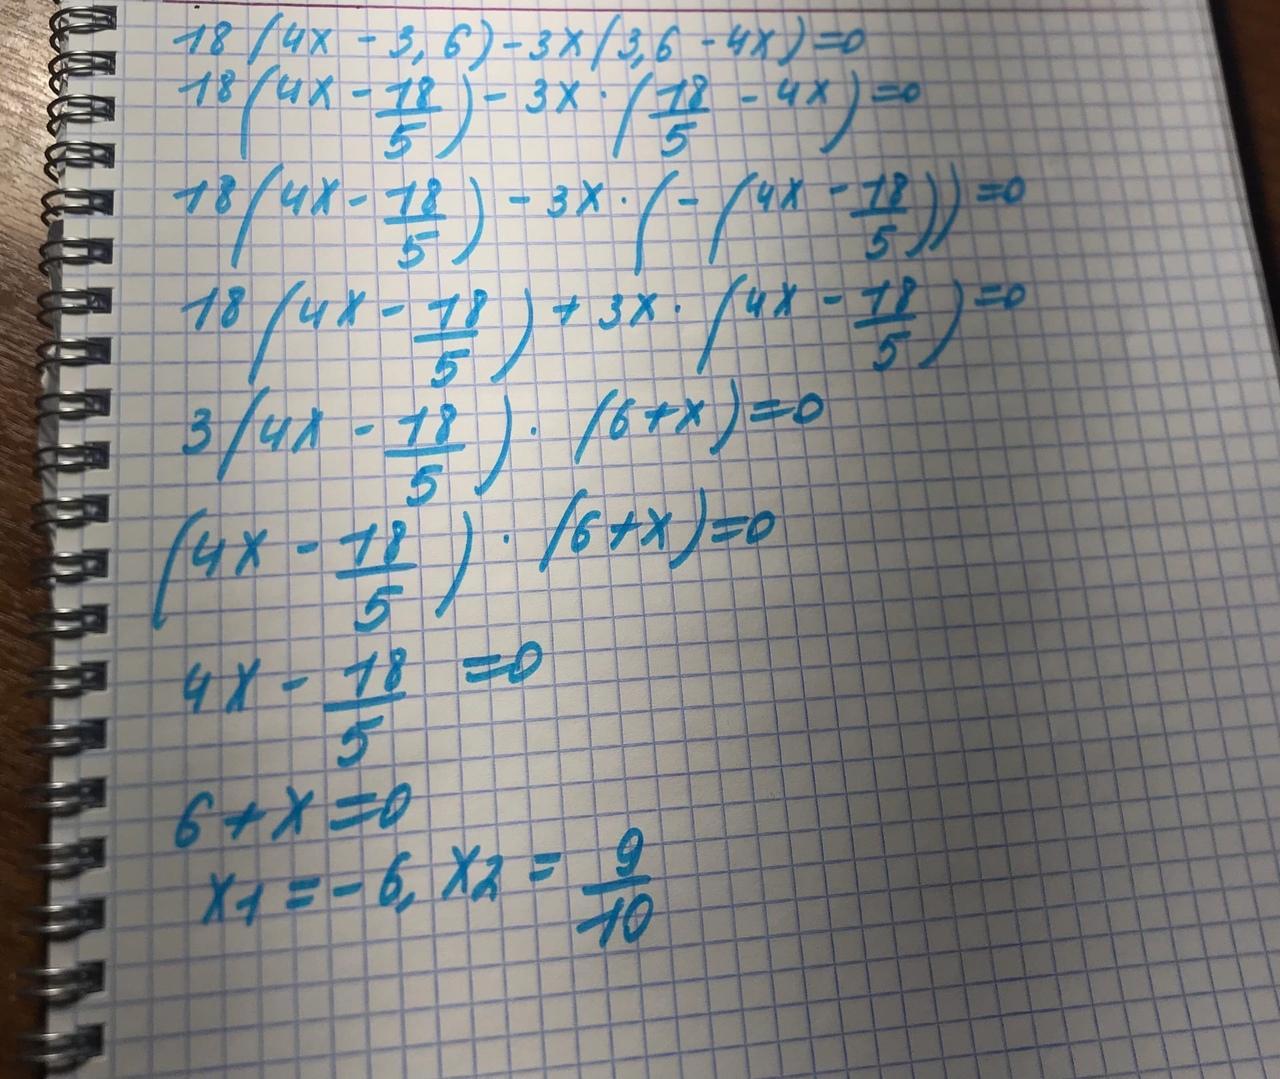 18(4x - 3,6) - 3x(3,6 - 4x) = 0
18(4x - 18/5) - 3x · (18/5 - 4x) = 0
18(4x - 18/5) - 3x · (-(4x - 18/5)) = 0
18(4x - 18/5) + 3x · (4x - 18/5) = 0
3(4x - 18/5) · (6+x) = 0
(4x - 18/5) · (6+x) = 0
4x - 18/5 = 0
6+x = 0
x1 = -6, x2 = 9/10